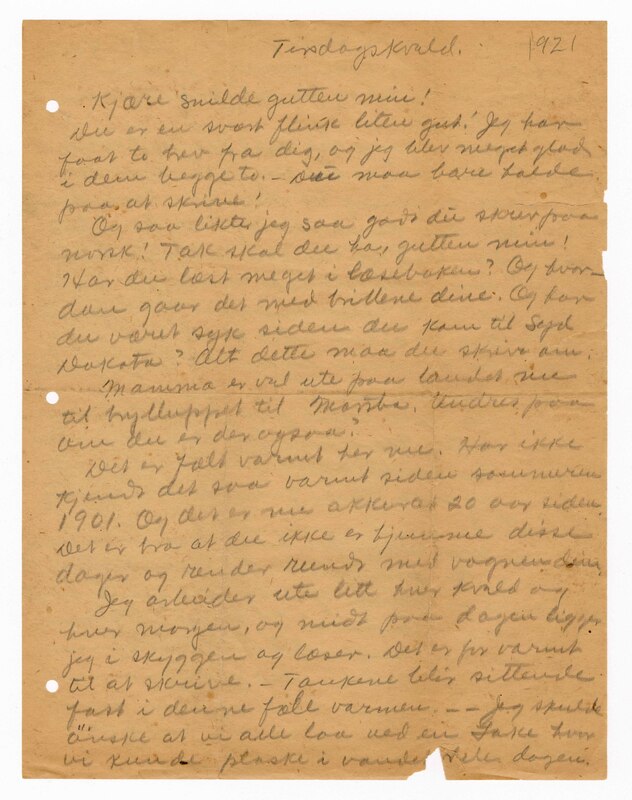 Tirsdagskvald. 1921
Kjære snilde gutten min!
Du er en svært flink liten gut! Jeg har
faat to brev fra dig, og jeg blev meget glad
i dem begge to. — Du maa bare holde
paa at skrive!
Og saa likte jeg saa godt du skrev paa
norsk! Tak skal du ha, gutten min!
Har du læst meget i læseboken? Og hvor-
dan gaar det med brillene dine. Og har
du været syk siden du kom til Syd
Dakota? Alt dette maa du skrive om.
Mamma er vel ute paa landet nu
til bryllupet til Martha. Undres paa
om du er der ogsaa?
Det er fælt varmt her nu. Har ikke
kjendt det saa varmt siden sommeren
1901. Og det er nu akkurat 20 aar siden.
Det er bra at du ikke er hjemme disse
dager og render rundt med vognen din.
Jeg arbeider ute litt hver kvald og
hver morgen, og midt paa dagen ligger
jeg i skyggen og læser. Det er for varmt
til at skrive. — Tankene blir sittende
fast i denne fæle varmen. — — Jeg skulde
ønske at vi alle laa ved en Lake hvor
vi kunde plaske i vandet hele dagen.